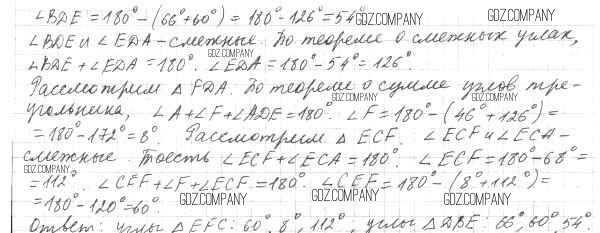 ∠BDE = 180° - (66° + 60°) = 180° - 126° = 54°
GDZ.COMPANY
GDZ.COMPANY
∠BDE и ∠EDA - смежные. По теореме о смежных углах,
GDZ.COMPANY
∠BDE + ∠EDA = 180°. ∠EDA = 180° - 54° = 126°.
Рассмотрим △ FDA. По теореме о сумме углов тре-
GDZ.COMPANY
GDZ.COMPANY
угольника, ∠A + ∠F + ∠ADE = 180°. ∠F = 180° - (46° + 126°) =
= 180° - 172° = 8°. Рассмотрим △ ECF. ∠ECF и ∠ECA -
смежные. Тоесть ∠ECF + ∠ECA = 180°. ∠ECF = 180° - 68° =
GDZ.COMPANY
= 112°. ∠CEF + ∠F + ∠ECF = 180°. ∠CEF = 180° - (8° + 112°) =
= 180° - 120° = 60°.
GDZ.COMPANY
GDZ.COMPANY
GDZ.COMPANY
Ответ: углы △ EFC: 60°, 8°, 112°, углы △ DBE: 66°, 60°, 54°.